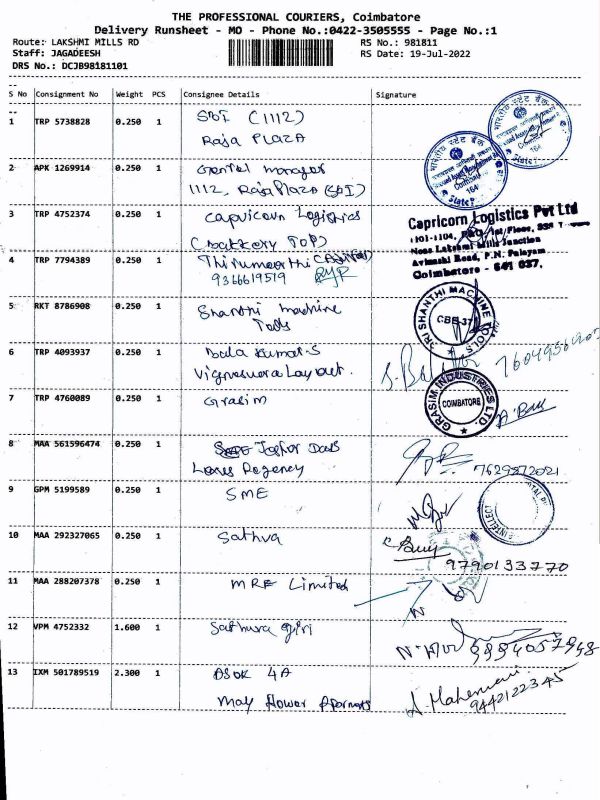 THE PROFESSIONAL COURIERS, Coimbatore
Delivery Runsheet - MO - Phone No.:0422-3505555 - Page No.:1
Route: LAKSHMI MILLS RD RS No.: 981811
Staff: JAGADEESH RS Date: 19-Jul-2022
DRS No.: DCJB98181101
S No Consignment No Weight PCS Consignee Details Signature
1 TRP 5738828 0.250 1 SBI (1112)
Raja PLAZA
2 APK 1269914 0.250 1 General manager
1112, Raja Plaza (SBI)
3 TRP 4752374 0.250 1 Capricorn Logistics
Capricorn Logistics Pvt Ltd
Near Lakshmi Mills Junction
Avinashi Road, P.N. Palayam
Coimbatore - 641 037.
4 TRP 7794389 0.250 1 Thirumoorthi
9366619519
5 RKT 8786908 0.250 1 Shanthi machine
Tools
SRI SHANTHI MACHINE TOOLS
CBE-37
6 TRP 4093937 0.250 1 Bala Kumar.S
Vigneswera Layout.
7 TRP 4760089 0.250 1 Grasim
GRASIM INDUSTRIES LTD.
COIMBATORE
8 MAA 561596474 0.250 1
Regency
7629872021
9 GPM 5199589 0.250 1 SME
10 MAA 292327065 0.250 1 Sathva
9790133770
11 MAA 288207378 0.250 1 MRF Limited
12 VPM 4752332 1.600 1 giri
9894057948
13 IXM 501789519 2.300 1 ASOK 4A
May Flower
9442122345